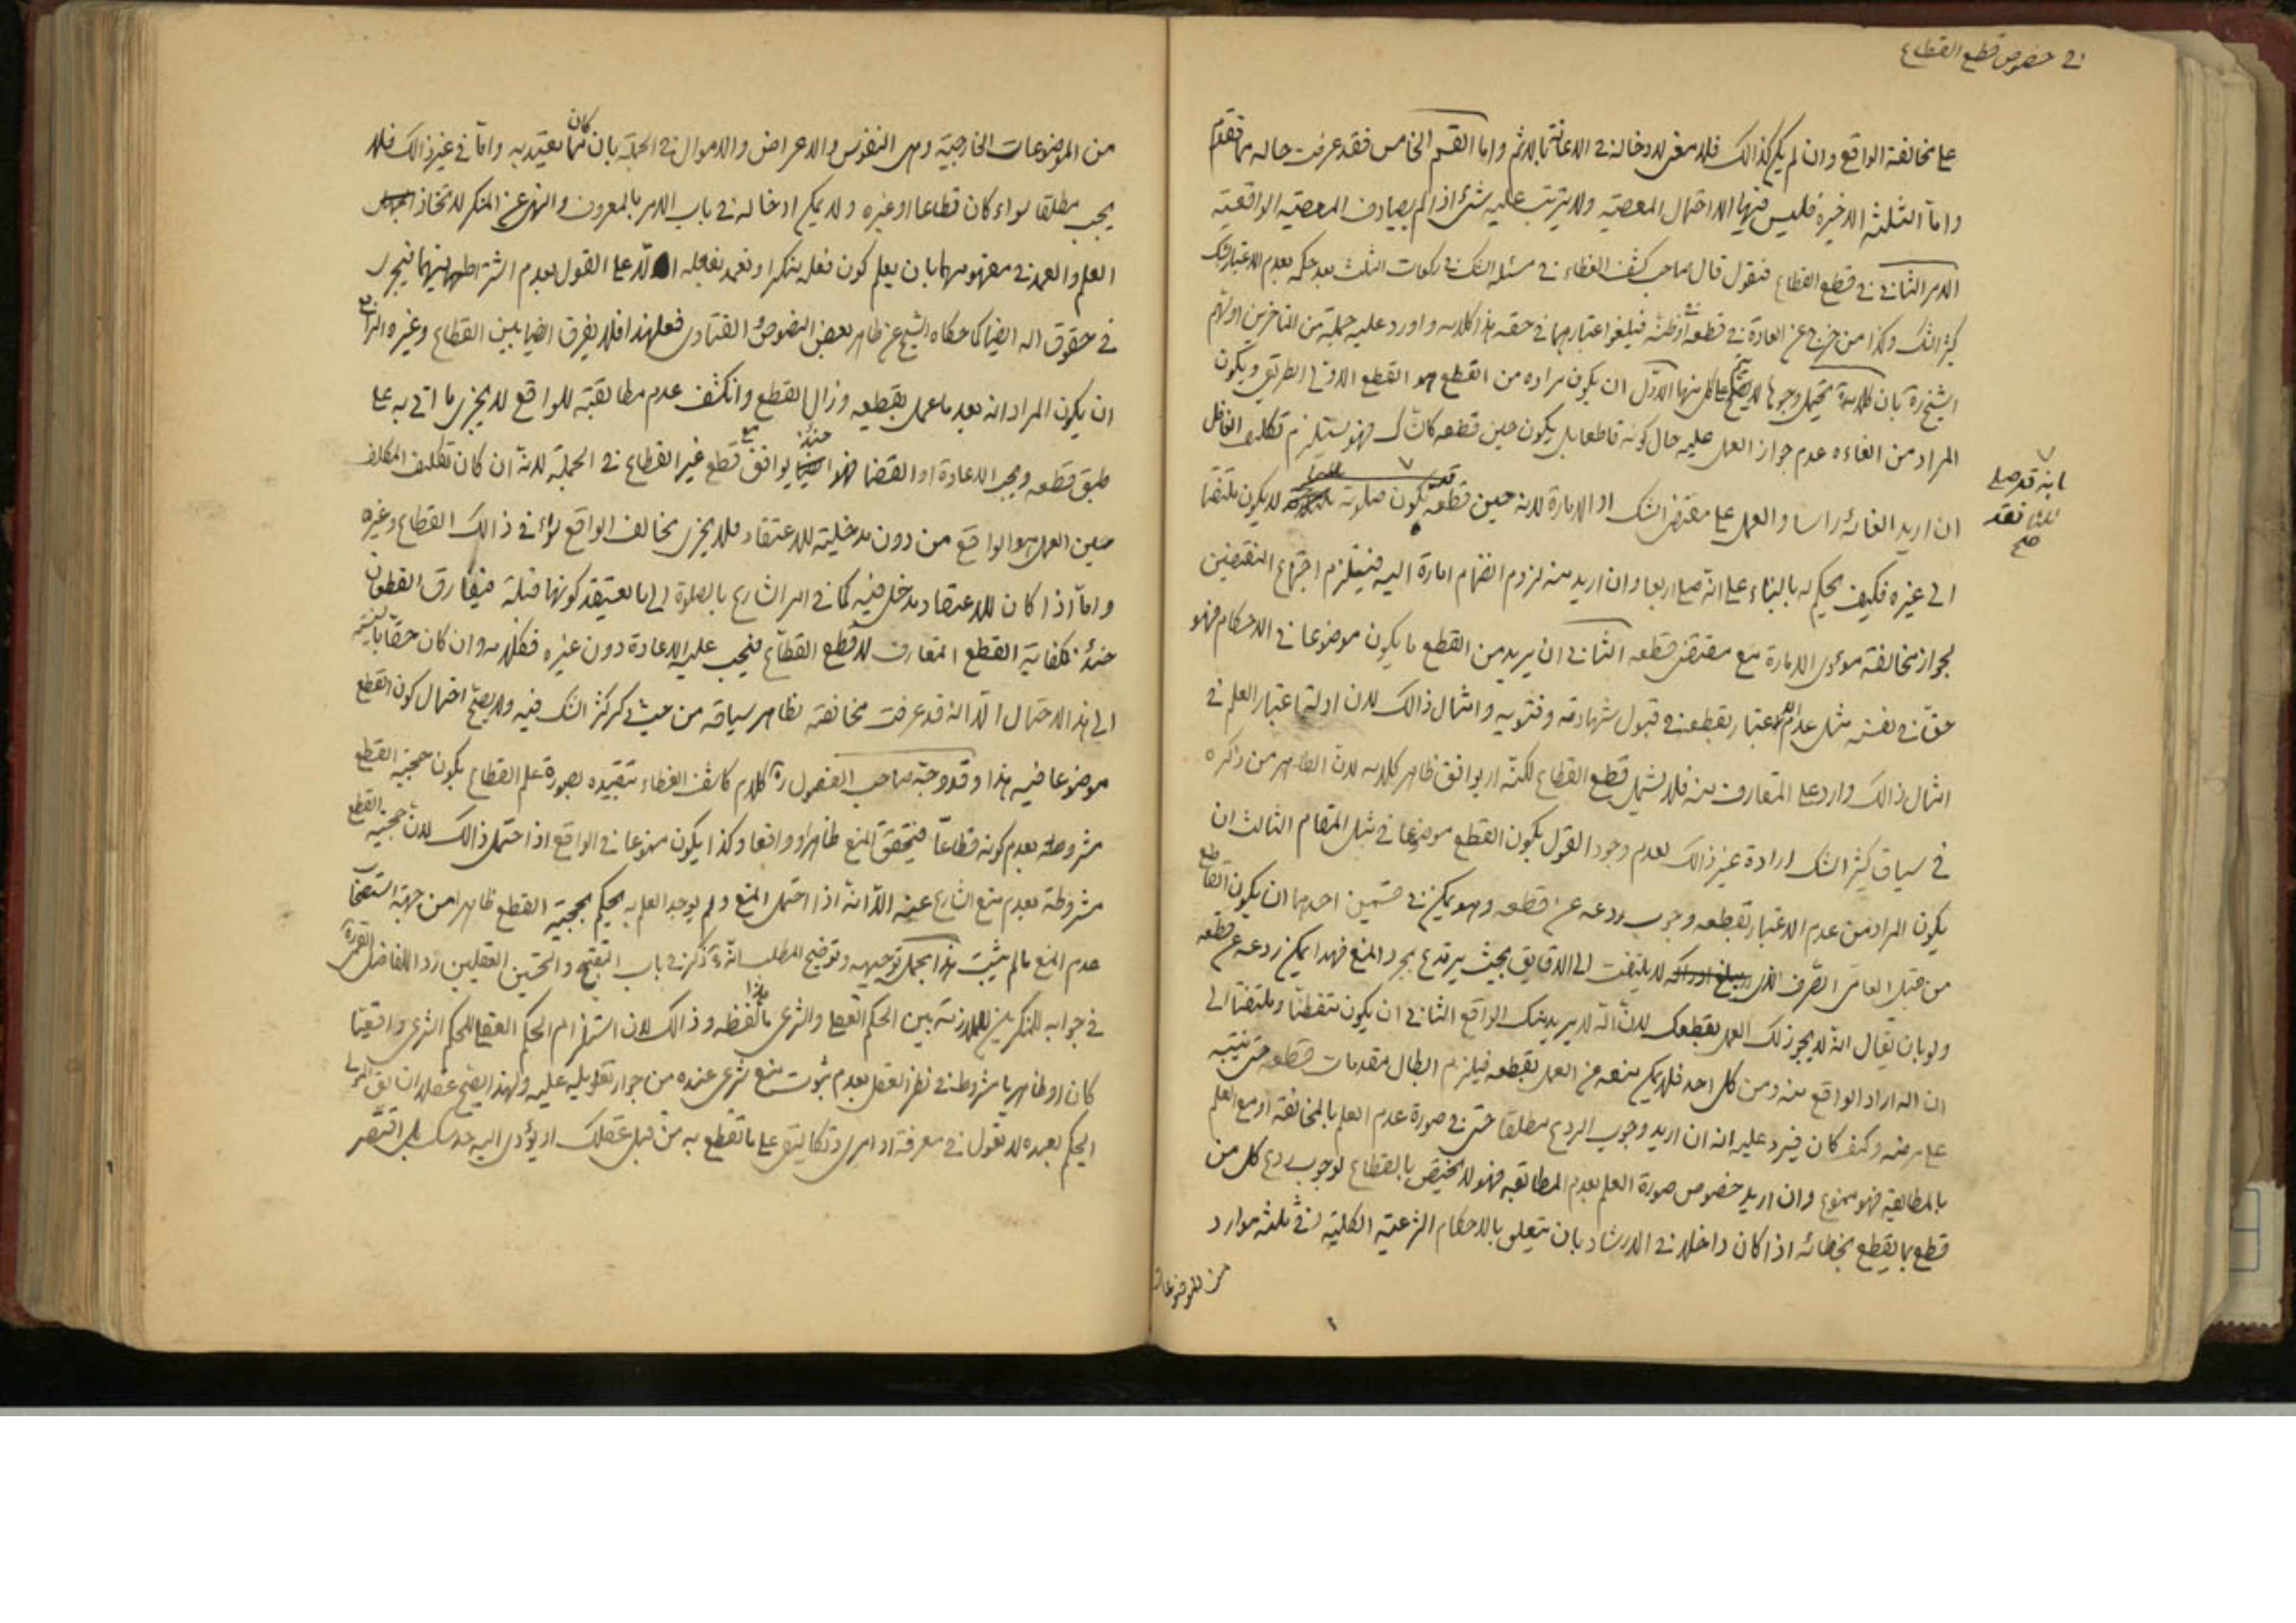 في خصوص قطع القطاع
على مخالفته الواقع وان لم يكن كذالك فلا معنى لادخاله في الاعانة بالاثم واما القسم الخامس فقد عرفت حاله مما تقدم
واما الثلثة الاخيرة فليس فيها الا احتمال المعصية ولا يترتب عليه شئ اذا لم يصادف المعصية الواقعية
الامر الثاني في قطع القطاع فنقول قال صاحب كشف الغطاء في مسئلة الشك في ركعات الثلث بعد حكمه بعدم الاعتبار بشك
كثير الشك وكذا من خرج عن العادة في قطعه او ظنه فيلغو اعتبارهما في حقه هذا كلامه واورد عليه جملة من المتاخرين اولهم
الشيخ ره بان كلامه يحتمل وجوها لا يصح على كل منها الاول ان يكون مراده من القطع هو القطع الاوفى الطريقي ويكون
المراد من الغائه عدم جواز العمل عليه حال كونه قاطعا بل يكون حين قطعه كالشاك فهو يستلزم تكليف الغافل
انه قد صلى
ثلثا فقد
صح
ان اريد الغائه راسا والعمل على مقتضى الشك او الامارة لانه حين قطعه بكون صلوته لا يكون ملتفتا
الى غيره فكيف يحكم له بالبناء على انه صلى اربعا وان اريد منه لزوم انضمام امارة اليه فيستلزم اجتماع النقيضين
لجواز مخالفة مؤدى الامارة مع مقتضى قطعه الثاني ان يريد من القطع ما يكون موضوعا في الاحكام فهو
حق في نفسه مثل عدم الاعتبار بقطعه في قبول شهادته وفتويه وامثال ذالك لان ادلة اعتبار العلم في
امثال ذالك وارد على المتعارف منه فلا يشمل قطع القطاع لكنه لا يوافق ظاهر كلامه لان الظاهر من ذكره
في سياق كثير الشك ارادة غير ذالك لعدم وجود القول بكون القطع موضوعا في مثل المقام الثالث ان
يكون المراد من عدم الاعتبار بقطعه وجوب ردعه عن قطعه وهو يمكن في قسمين احدهما ان يكون القاطع
من قبيل العامى الصرف الذى لا يلتفت الى الدقايق بحيث يرتدع بمجرد المنع فهذا يمكن ردعه عن قطعه
ولو بان يقال انه لا يجوز لك العمل بقطعك لان الله لا يريد منك الواقع الثاني ان يكون متفطنا وملتفتا الى
ان الله اراد الواقع منه ومن كل احد فلا يمكن منعه عن العمل بقطعه فيلزم ابطال مقدمات قطعه حتى ينتبه
على مرضه وكيف كان فيرد عليه انه ان اريد وجوب الردع مطلقا حتى في صورة عدم العلم بالمخالفة او مع العلم
بالمطابقة فهو ممنوع وان اريد خصوص صورة العلم بعدم المطابقة فهو لا يختص بالقطاع لوجوب ردع كل من
قطع بما يقطع بخطائه اذا كان داخلا في الارشاد بان يتعلق بالاحكام الشرعية الكلية في ثلثة موارد
من الموضوعات
من الموضوعات الخارجية وهى النفوس والاعراض والاموال في الجملة بان كان مما يعتد به واما في غير ذالك فلا
يجب مطلقا سواء كان قطاعا او غيره ولا يمكن ادخاله في باب الامر بالمعروف والنهى عن المنكر لاتخاذ
العلم والعمد في مفهومهما بان يعلم كون فعله منكرا وتعمد بفعله الا على القول بعدم اشتراطهما فيهما فيجرى
في حقوق الله ايضا كما حكاه الشيخ عن ظاهر بعض النصوص والفتاوى فعلى هذا فلا يفرق ايضا بين القطاع وغيره الرابع
ان يكون المراد انه بعد ما عمل بقطعه وزال القطع وانكشف عدم مطابقته للواقع لا يجزى ما اتى به على
طبق قطعه ويجب الاعادة او القضا فهو حينئذ يوافق مع قطع غير القطاع في الجملة لانه ان كان تكليف المكلف
حين العمل هو الواقع من دون مدخلية للاعتقاد فلا يجزى مخالف الواقع سواء في ذالك القطاع وغيره
واما اذا كان للاعتقاد مدخل فيه كما في امر الشارع بالصلوة الى ما يعتقد كونها قبلة فيفارق القطعان
حينئذ لكفاية القطع المتعارف لا قطع القطاع فيجب عليه الاعادة دون غيره فكلامه وان كان حقا بالنسبة
الى هذا الاحتمال الا انه قد عرفت مخالفته لظاهر سياقه من حيث ذكر كثير الشك فيه ولا يصح احتمال كون القطع
موضوعا فيه هذا وقد وجه صاحب الفصول ره كلام كاشف الغطاء بتقييده بصورة علم القطاع بكون حجية القطع
مشروطة بعدم كونه قطاعا فيتحقق المنع ظاهرا وواقعا وكذا يكون ممنوعا في الواقع اذا احتمل ذالك لان حجية القطع
مشروطة بعدم منع الشارع عنه الا انه اذا احتمل المنع ولم يوجد العلم به يحكم بحجية القطع ظاهرا من جهة استصحاب
عدم المنع ما لم يثبت هذا مجمل توجيهه وتوضيح المطلب انه ذكر في باب التقبيح والتحسين العقليين ردا للفاضل
في جوابه للمنكرين للملازمة بين الحكم العقلى والشرعى ما لفظه هذا وذالك لان استلزام الحكم العقلى للحكم الشرعى واقعيا
كان او ظاهريا مشروط في نظر العقل بعدم ثبوت منع شرعى عنده من جواز تعويله عليه ولهذا يصح عقلا ان يقول المولى
الحكيم لعبده لا تعول في معرفة اوامرى وتكاليفى على ما تقطع به من قبل عقلك او يؤدى اليه حدسك بل اقتصر